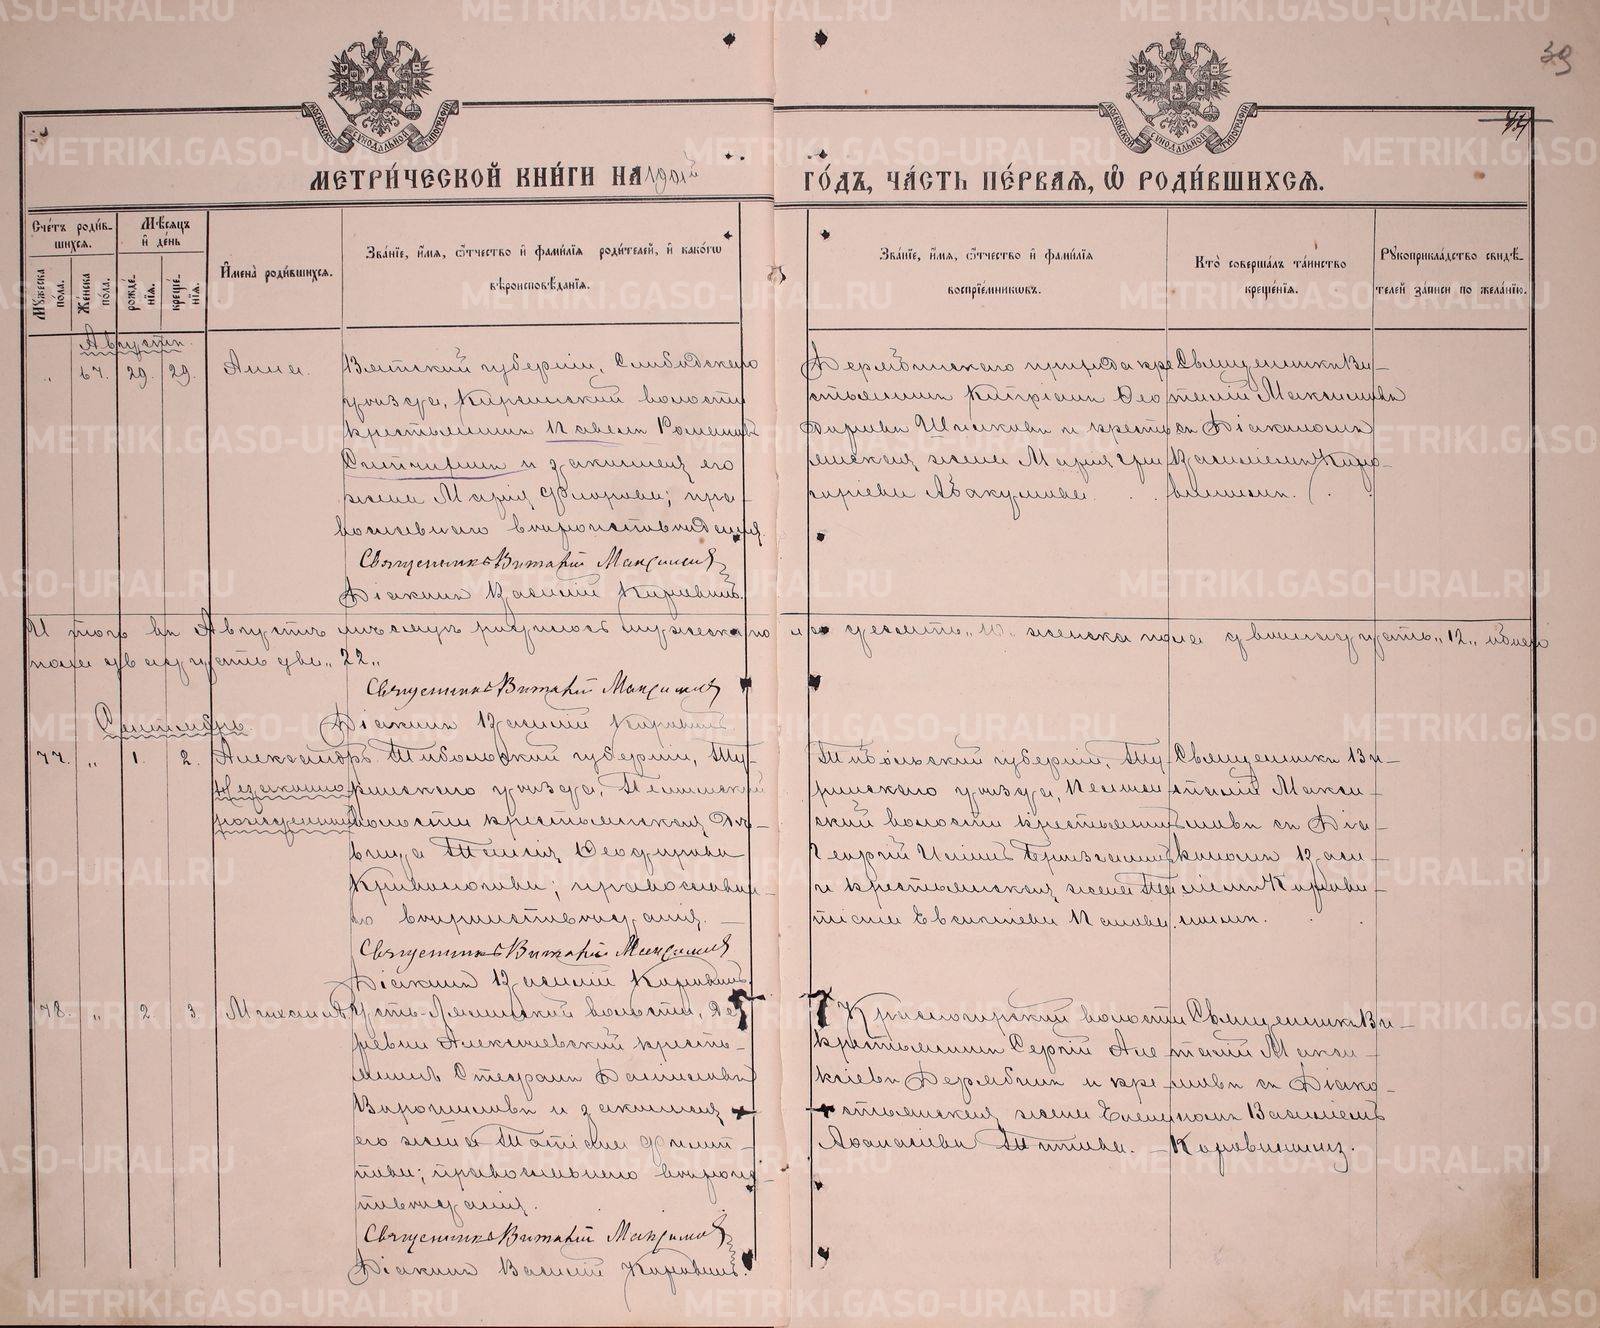 39
44
МЕТРИ́ЧЕСКОЙ КНИ́ГИ НА 1901й ГО́ДЪ, ЧА́СТЬ ПЕ́РВАЯ, Ѡ РОДИ́ВШИХСЯ.
Сче́тъ роди́вшихся.
Мꙋ́жеска по́ла.
Же́нска по́ла.
Мѣ́сяцъ и҆ де́нь
рожде́нїя.
креще́нїя.
И҆мена̀ роди́вшихся.
Зва́нїе, и҆́мя, ѻ҆́тчество и҆ фами́лїя роди́телей, и҆ како́гѡ
вѣроисповѣ́данїя.
Зва́нїе, и҆́мя, ѻ҆́тчество и҆ фами́лїя
воспрїе́мникѡвъ.
Кто̀ соверша́лъ та́инство
креще́нїя.
Рꙋкоприкла́дство свидѣ́-
телей за́писи по жела́нїю.
Августъ.
„ 67. 29. 29. Анна.
Вятской губерніи, Слободскаго
уѣзда, волости
крестьянинъ Павелъ
и законная его
жена Марія Флорова; пра-
вославнаго вѣроисповѣданія.
Священникъ Виталій Максимовъ
Діаконъ Василій Коровинъ.
прихода кре-
стьянинъ
и кресть-
янская жена Марія Гри-
горіева Авакумова.
Священникъ Ви-
талій Максимовъ
съ Діакономъ
Василіемъ Коро-
винымъ.
Итого въ Августѣ мѣсяцѣ родилось мужеска по-ла десять „10„ женска пола двѣнадцать „12„ обоего
пола двадцать два „22„
Священникъ Виталій Максимовъ
Діаконъ Василій Коровинъ
Сентябрь.
77. „ 1. 2. Александръ
незаконно
рожденный
Тобольской губерніи, Ту-
ринскаго уѣзда,
волости крестьянская дѣ-
вица Таисія Феодорова
Кривоногова; православна-
го вѣроисповѣданія.
Священникъ Виталій Максимовъ
Діаконъ Василій Коровинъ
Тобольской губерніи, Ту-
ринскаго уѣзда,
ской волости крестьянинъ
Георгій
и крестьянская жена Та-
тіана
Священникъ Ви-
талій Макси-
мовъ съ Діа-
кономъ Васи-
ліемъ Корови-
нымъ.
78. „ 2. 3. Михаилъ
волости, де-
ревни Алексѣевской кресть-
янинъ Стефанъ
и законная
его жена Татіана Филип-
пова; православнаго вѣроис-
повѣданія.
Священникъ Виталій Максимовъ
Діаконъ Василій Коровинъ.
Красногорской волости
крестьянинъ Сергій Але-
ксіевъ Дерябинъ и кре-
стьянская жена Елена
Афанасіева Титова.
Священникъ Ви-
талій Макси-
мовъ съ Діако-
номъ Василіемъ
Коровинымъ.
METRIKI.GASO-URAL.RU